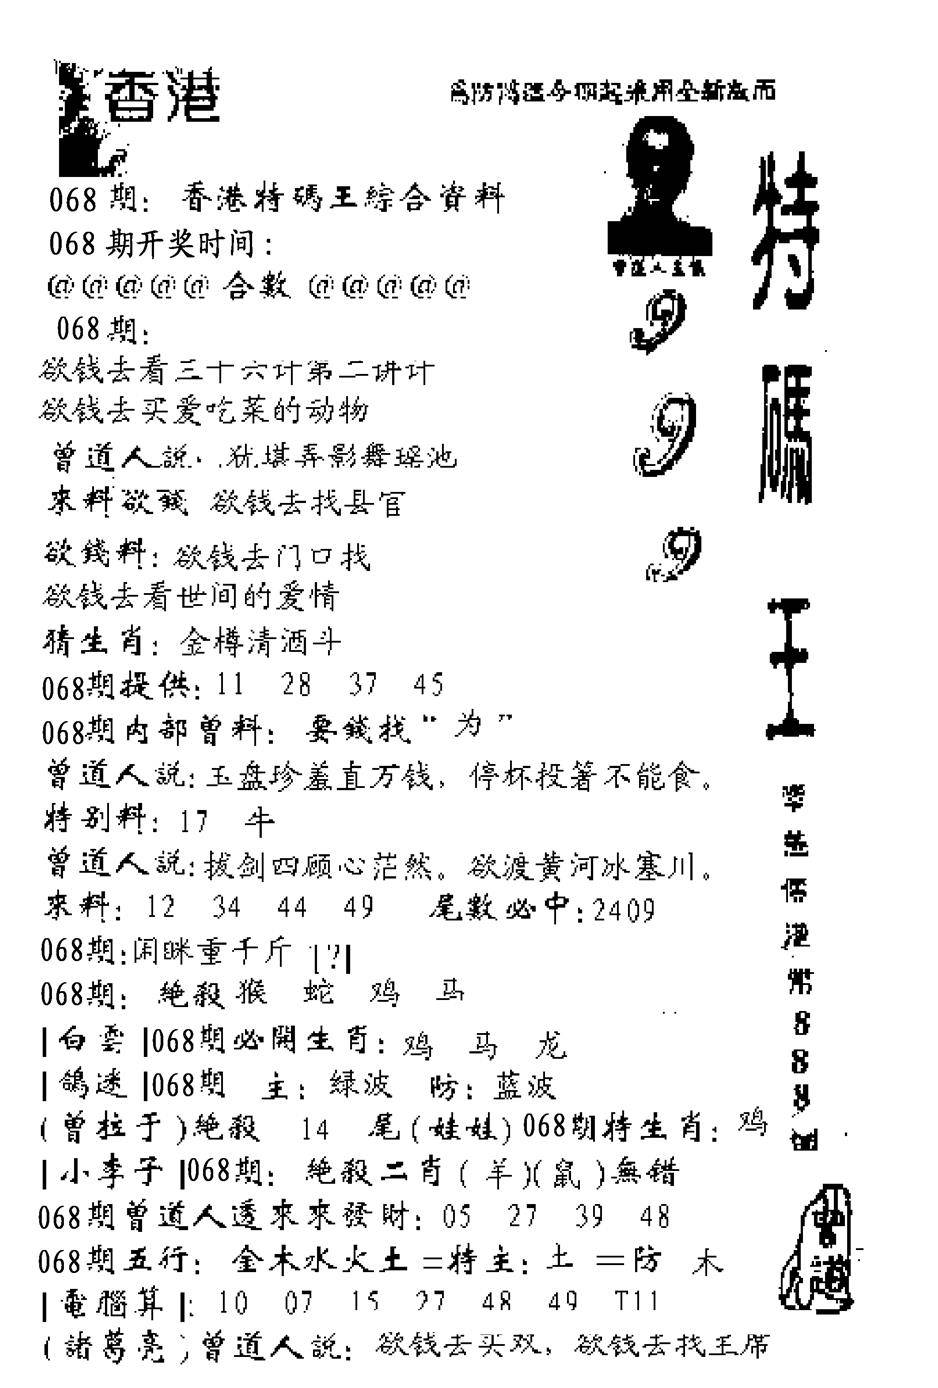 香港
068期：香港特碼王綜合資料
068期开奖时间：
@@@@@合數@@@@@
068期：
欲钱去看三十六计第二讲计
欲钱去买爱吃菜的动物
曾道人説：犹堪弄影舞瑶池
來料欲錢 欲钱去找县官
欲錢料：欲钱去门口找
欲钱去看世间的爱情
猜生肖：金樽清酒斗
068期提供：11 28 37 45
068期内部曾料：要錢找“为”
曾道人説：玉盘珍羞直万钱，停杯投箸不能食。
特别料：17 牛
曾道人説：拔剑四顾心茫然。欲渡黄河冰塞川。
來料：12 34 44 49 尾數必中：2409
068期：闲眯重千斤 [?]
068期：絶殺猴 蛇 鸡 马
|白雲|068期必開生肖：鸡 马 龙
|鴿迷|068期 主：绿波 防：蓝波
(曾拉于)絶殺 14 尾(娃娃)068期特生肖：鸡
|小李子|068期：絶殺二肖(羊)(鼠)無错
068期曾道人透來來發財：05 27 39 48
068期五行：金木水火土=特主：土=防 木
|電腦算|：10 07 15 27 48 49 T11
(諸葛亮)曾道人説：欲钱去买双，欲钱去找主席
特碼王
999
港幣888
曾道